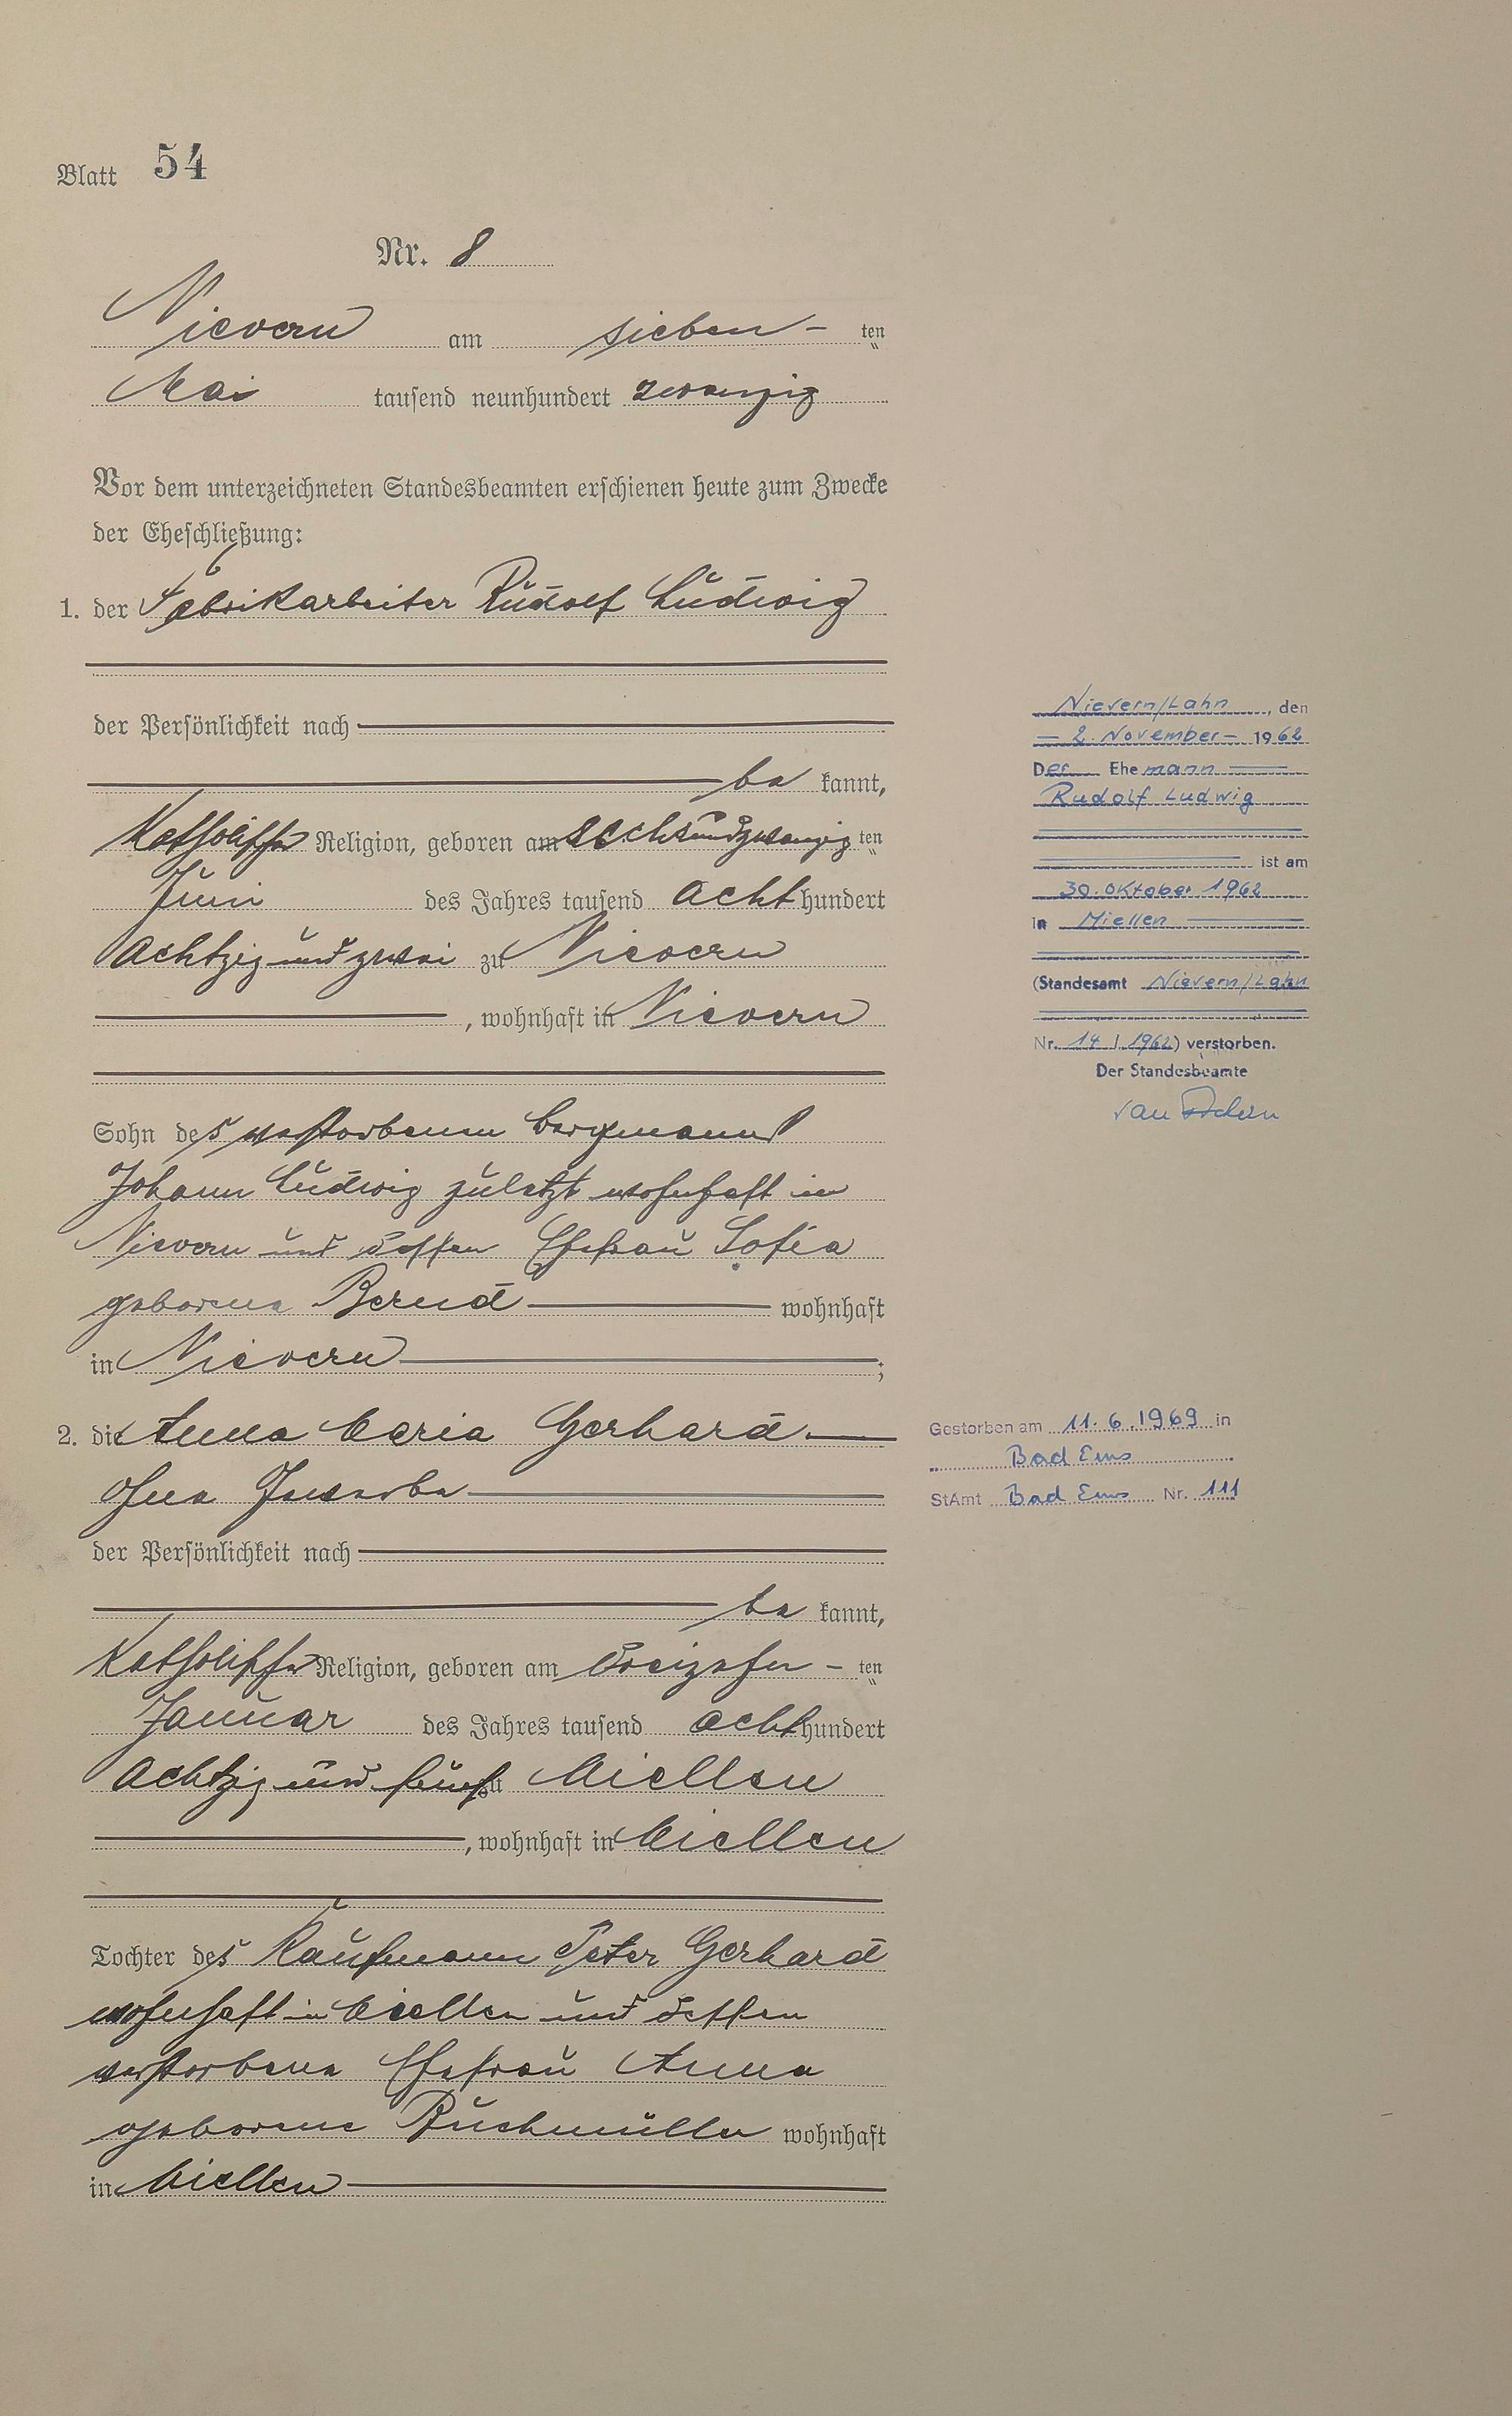 Blatt 54
Nr. 8
Nievern am sieben- ten
Mai tausend neunhundert zwanzig
Vor dem unterzeichneten Standesbeamten erschienen heute zum Zwecke
der Eheschließung:
1. der Fabrikarbeiter Rudolf Ludwig
der Persönlichkeit nach
be kannt,
Katholischer Religion, geboren am sechsundzwanzig ten
Juni des Jahres tausend acht hundert
Achtzig und zwei zu Nievern
, wohnhaft in Nievern
Sohn des verstorbenen Bergmanns
Johann Ludwig zuletzt wohnhaft in
Nievern und dessen Ehefrau Sofia
geborene Bernd wohnhaft
in Nievern ;
2. die Anna Maria Gerhard
ohne Gewerbe
der Persönlichkeit nach
be kannt,
Katholischer Religion, geboren am dreizehn - ten
Januar des Jahres tausend acht hundert
Achtzig und fünf zu Miellen
, wohnhaft in Miellen
Tochter des Kaufmann Peter Gerhard
wohnhaft in Miellen und dessen
verstorbene Ehefrau Anna
geborene Buchmüller wohnhaft
in Miellen
Nievern/Lahn, den
- 2. November - 1962
Der Ehemann
Rudolf Ludwig
ist am
30. Oktober 1962
in Miellen
(Standesamt Nievern/Lahn
Nr. 14 / 1962) verstorben.
Der Standesbeamte
Gestorben am 11.6.1969 in
Bad Ems
StAmt Bad Ems Nr. 111